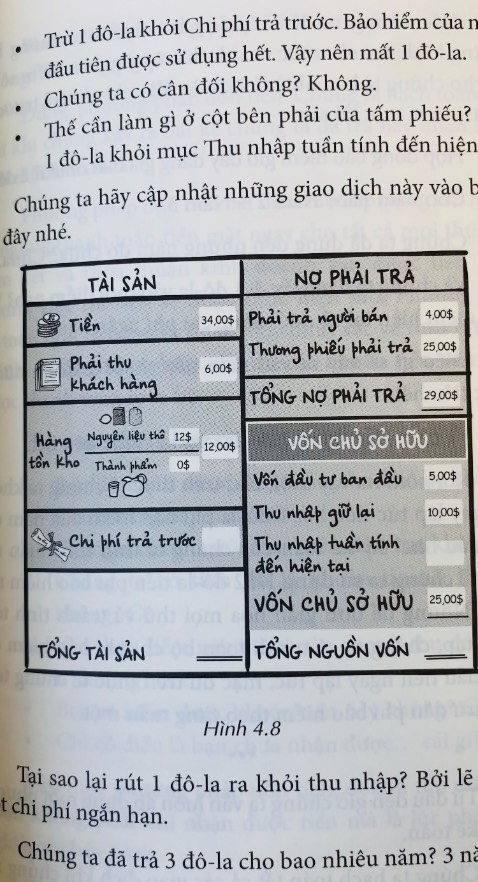 • Trừ 1 đô-la khỏi Chi phí trả trước. Bảo hiểm của
đầu tiên được sử dụng hết. Vậy nên mất 1 đô-la.
Chúng ta có cân đối không? Không.
• Thế cần làm gì ở cột bên phải của tấm phiếu?
1 đô-la khỏi mục Thu nhập tuần tính đến hiện
Chúng ta hãy cập nhật những giao dịch này vào
đây nhé.
TÀI SẢN
Tiền 34,00$
Phải thu
khách hàng 6,00$
Hàng
tồn kho
Nguyên liệu thô 12$
Thành phẩm 0$
12,00$
Chi phí trả trước
TỔNG TÀI SẢN
NỢ PHẢI TRẢ
Phải trả người bán 4,00$
Thương phiếu phải trả 25,00$
TỔNG NỢ PHẢI TRẢ 29,00$
VỐN CHỦ SỞ HỮU
Vốn đầu tư ban đầu 5,00$
Thu nhập giữ lại 10,00$
Thu nhập tuần tính
đến hiện tại
VỐN CHỦ SỞ HỮU 25,00$
TỔNG NGUỒN VỐN
Hình 4.8
Tại sao lại rút 1 đô-la ra khỏi thu nhập? Bởi lẽ
chi phí ngắn hạn.
Chúng ta đã trả 3 đô-la cho bao nhiêu năm? 3